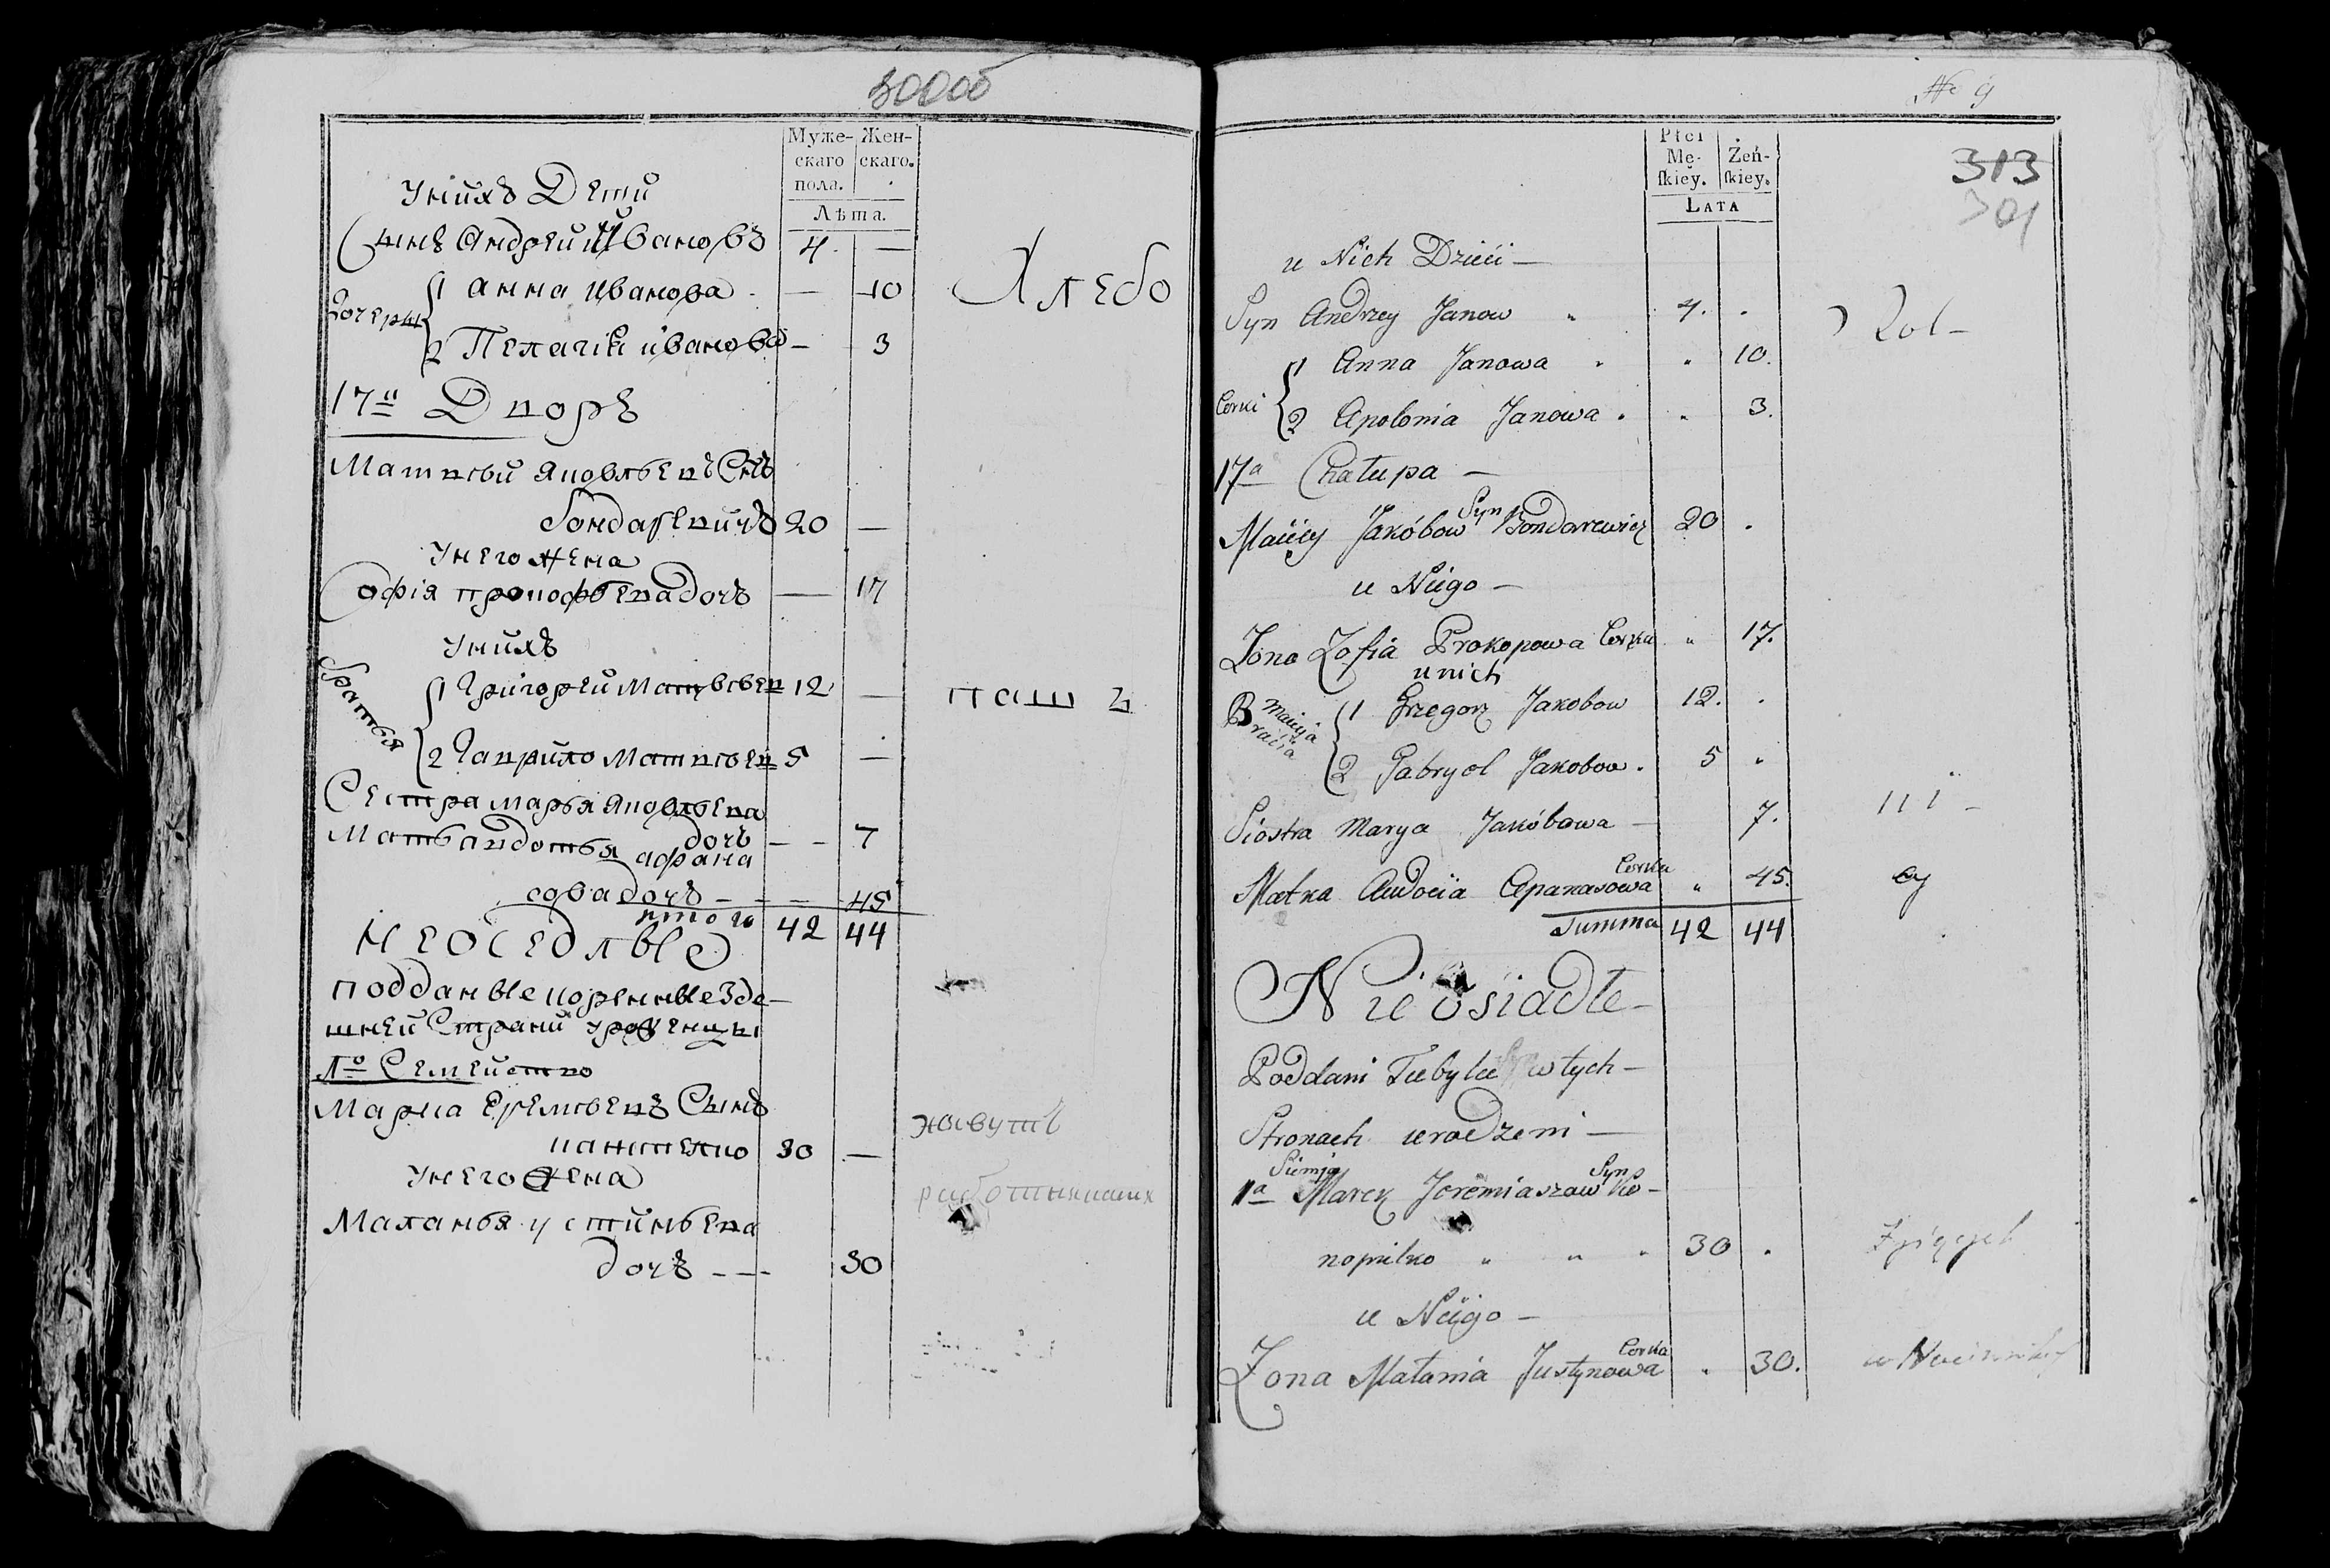 30000
Муже-
скаго
пола.
Жен-
скаго.
Лѣта.
у нихъ Дети
Сынъ Андрей Ивановъ 4. —
Дочери
1 анна иванова — 10
2 Пелагія иванова — 3
Хлебо
17й Дворъ
Матвей яковлевъ Снъ
бондаревичъ 20 —
у него жена
Софія прокофьева дочь — 17
у нихъ
братья
1 Григорей Матвеев 12 —
2 Гаврило Матвеев 5 —
паш
Сестра марья яковлева
дочь — — 7
Мать авдотья афана
сова дочь — — 45
итого 42 44
Неоседлые
подданые коренные зде-
шней Страни уроженцы
1о Семейство
Марка Еремеевъ Сынъ
канопелко 30 —
у него жена
Маланья устиньева
дочь — — 30
живутъ
работниками
№ 9
313
301
Płci
Mę-
skiey.
Żeń-
skiey.
LATA
u Nich Dzieci —
Syn Andrzey Janow " 4. .
Corki
1 Anna Janowa . " 10.
2 Apolonia Janowa . " 3.
Rol —
17a Chałupa —
Maciey Jakóbow Syn Bondarewicz 20 .
u Niego —
Żona Zofia Prokopowa Corka " 17.
u nich
Bracia Macieja
1 Grzegorz Jakobow 12. .
2 Gabryel Jakobow . 5 "
Siostra Marya Jakóbowa — 7.
Matka Audocia Apanasowa Corka " 45.
Summa 42 44
Nie osiadłe —
Poddani Tubylce w tych —
Stronach urodzeni —
1a Siemia Marek Jeremiaszow Syn Ko-
nopielko " " " 30 .
u Niego —
Żona Małania Justynowa Corka . 30.